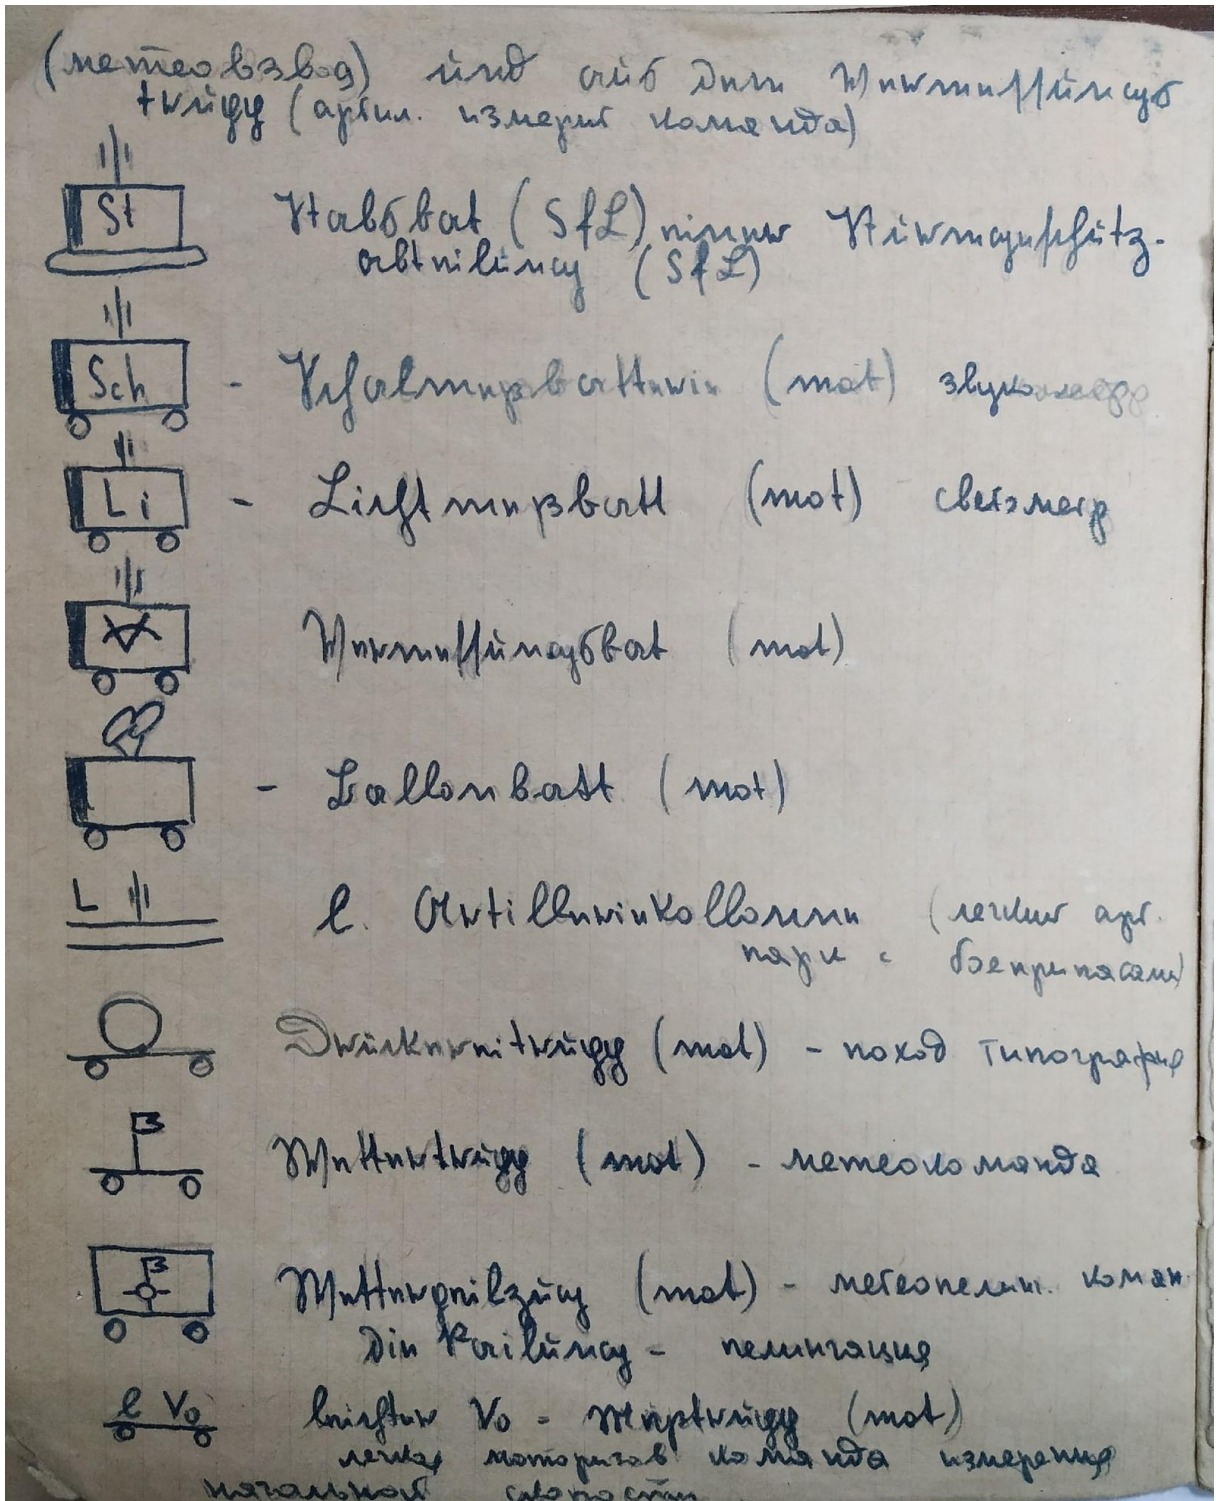 (метеовзвод) und aus dem Vermessungs
trupp (артил. измерит команда)
St
Stabsbat (SfL) einer Sturmgeschütz-
abteilung (SfL)
Sch
- Schallmeßbatterie (mot) звукометр
Li
- Lichtmeßbatt (mot) светометр
Vermessungsbat (mot)
- Ballonbatt (mot)
L
l. Artilleriekollonne (легкий арт.
парк с боеприпасами)
Druckereitrupp (mot) - поход типография
Wettertrupp (mot) - метеокоманда
Wetterpeilzug (mot) - метеопелин. коман
die Pailung - пелингация
l Vo
leichter Vo - Meßtrupp (mot)
легкая моторизов команда измерения
начальной скорости